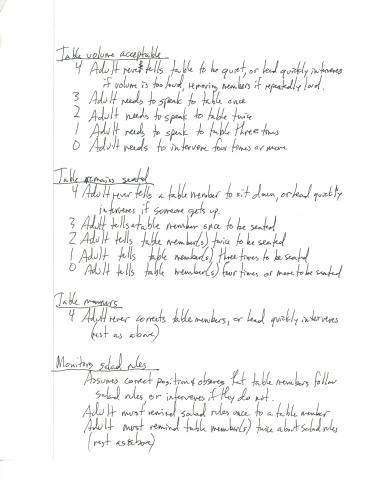 Table volume acceptable
4 Adult never tells table to be quiet, or lead quickly intervenes
if volume is too loud, removing members if repeatedly loud.
3 Adult needs to speak to table once
2 Adult needs to speak to table twice
1 Adult needs to speak to table three times
0 Adult needs to intervene four times or more
Table remains seated
4 Adult never tells a table member to sit down, or lead quickly
intervenes if someone gets up.
3 Adult tells a table member once to be seated
2 Adult tells table member(s) twice to be seated
1 Adult tells table member(s) three times to be seated
0 Adult tells table member(s) four times or more to be seated
Table manners
4 Adult never corrects table members, or lead quickly intervenes
(rest as above)
Monitors salad rules
Assumes correct position & observes that table members follow
salad rules or intervenes if they do not.
Adult must remind salad rules once to a table member
Adult must remind table member(s) twice about salad rules
(rest as above)